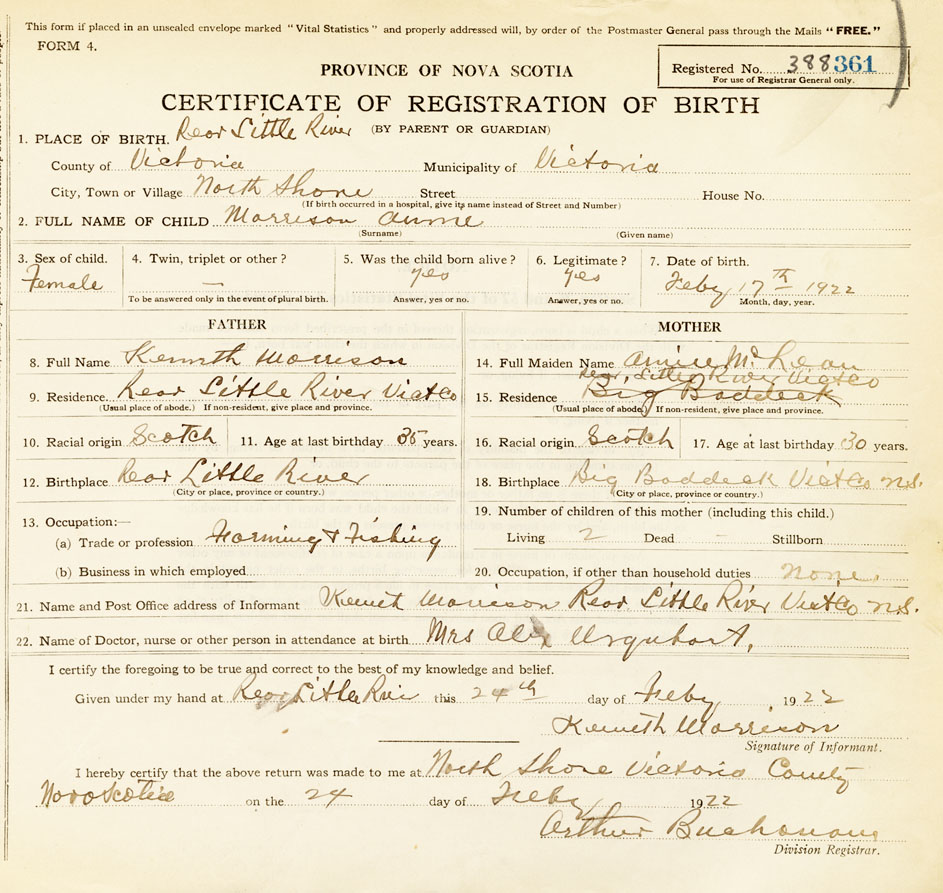 This form if placed in an unsealed envelope marked "Vital Statistics" and properly addressed will, by order of the Postmaster General pass through the Mails "FREE."
FORM 4.
PROVINCE OF NOVA SCOTIA
Registered No. 388361
For use of Registrar General only.
CERTIFICATE OF REGISTRATION OF BIRTH
(BY PARENT OR GUARDIAN)
1. PLACE OF BIRTH. Rear Little River
County of Victoria Municipality of Victoria
City, Town or Village North Shore Street House No.
(If birth occurred in a hospital, give its name instead of Street and Number)
2. FULL NAME OF CHILD Morrison Annie
(Surname) (Given name)
3. Sex of child. 4. Twin, triplet or other? 5. Was the child born alive? 6. Legitimate? 7. Date of birth.
Female — yes yes Feby 17th 1922
To be answered only in the event of plural birth. Answer, yes or no. Answer, yes or no. Month, day, year.
FATHER
8. Full Name Kenneth Morrison
9. Residence. Rear Little River Vict Co
(Usual place of abode.) If non-resident, give place and province.
10. Racial origin Scotch 11. Age at last birthday 35 years.
12. Birthplace Rear Little River
(City or place, province or country.)
13. Occupation:—
(a) Trade or profession Farming & Fishing
(b) Business in which employed
MOTHER
14. Full Maiden Name Annie McLean
Rear, Little River Vict Co
15. Residence Big Baddeck
(Usual place of abode.) If non-resident, give place and province.
16. Racial origin Scotch 17. Age at last birthday 30 years.
18. Birthplace Big Baddeck Vict Co N.S.
(City or place, province or country.)
19. Number of children of this mother (including this child.)
Living 2 Dead - Stillborn
20. Occupation, if other than household duties none.
21. Name and Post Office address of Informant Kenneth Morrison Rear Little River Vict Co N.S.
22. Name of Doctor, nurse or other person in attendance at birth Mrs Alex Urquhart,
I certify the foregoing to be true and correct to the best of my knowledge and belief.
Given under my hand at Rear Little River this 24th day of Feby 1922
Kenneth Morrison
Signature of Informant.
I hereby certify that the above return was made to me at North Shore Victoria County
Nova Scotia on the 24 day of Feby 1922
Arthur Buchanan
Division Registrar.